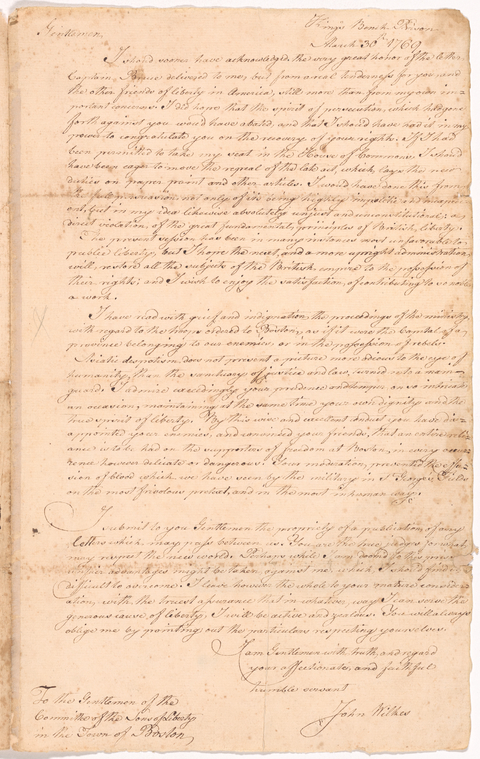 Gentlemen,
King's Bench Prison
March 30th 1769
I should sooner have acknowledged the very great honor of the letter
Captain Bruce delivered to me, but from a real tenderness for you, and
the other friends of liberty in America, still more than from my own im-
portant concerns. I did hope that the spirit of persecution, which had gone
forth against you would have abated, and that I should have had it in my
power to congratulate you on the recovery of your rights. If I had
been permitted to take my seat in the House of Commons, I should
have been eager to move the repeal of the late act, which lays the new
duties on paper, print and other articles. I would have done this from
the full persuasion, not only of its being highly impolitic and
but in my idea likewise absolutely unjust and unconstitutional, a
direct violation, of the great fundamental principles of British liberty.
The present session has been in many instances most unfavorable to
public liberty, but I hope the next, and a more upright administration,
will, restore all the subjects of the British empire to the possession of
their rights; and I wish to enjoy the satisfaction, of contributing to so noble
a work.
I have read with grief and indignation the proceedings of the ministry
with regard to the troops ordered to Boston, as if it were the Capital of a
province belonging to our enemies, or in the possession of rebels.
Asiatic despotism, does not present a picture more odious to the eye of
humanity, than the sanctuary of justice and law, turned into a main
guard. I admire exceedingly your prudence and temper on so intricate
an occasion, maintaining at the same time your own dignity and the
true spirit of liberty. By this wise and excellent conduct you have dis-
appointed your enemies, and convinced your friends, that an entire reli-
ance is to be had on the supporters of freedom at Boston, in every occur-
rence however delicate or dangerous. Your moderation, prevented the effu-
sion of blood which we have seen by the military in St. George's Fields
on the most frivolous pretext, and in the most inhuman way.
I submit to you Gentlemen the propriety of a publication of any
letters which may pass between us. You are the true judges for what
may respect the new world. Perhaps while I am doomed to this prison
certain advantages might be taken against me, which I should find it
difficult to overcome. I leave however the whole to your mature consider-
ation, with the truest assurance that in whatever way I can serve the
generous cause of liberty, I will be active and zealous. You will always
oblige me by pointing out the particulars respecting yourselves.
I am Gentlemen with truth and regard
your affectionate, and faithful
humble servant
John Wilkes
To the Gentlemen of the
Committee of the Sons of Liberty
in the Town of Boston